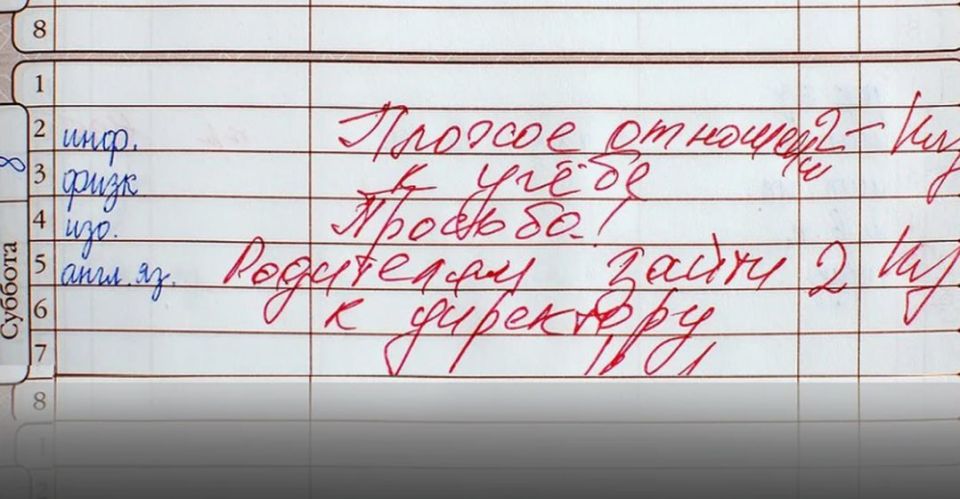 8
1
2 инф. Плохое отношени 2-
3 физк к учёбе
4 изо. Просьба!
5 англ. яз. Родителям зайти 2
6 к директору
7
8
Суббота